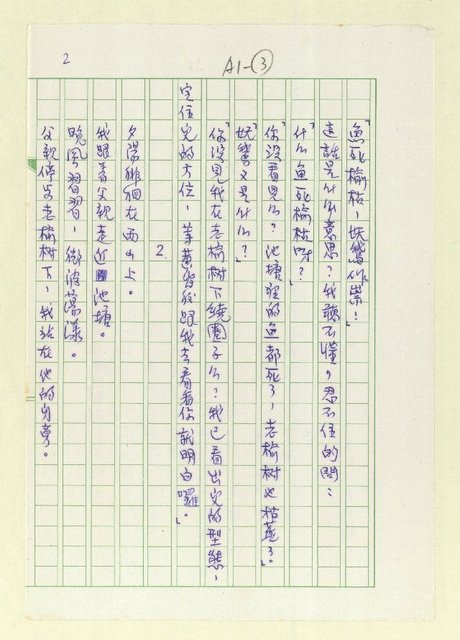 2
A1-③
「魚死榆枯，妖鱉作祟！」
這話是什么意思？我聽不懂，忍不住的問：
「什么魚死榆枯呀？」
「你沒看見么？池塘裡的魚都死了，老榆樹也枯萎了。」
「妖鱉又是什么？」
「你沒見我在老榆樹下繞圈子么？我已看出它的型態，
定住它的方位，等黃昏後跟我去看看你就明白囉。」
2.
夕陽徘徊在西山上。
我跟着父親走近池塘。
晚風習習，微波蕩漾。
父親停步老榆樹下，我站在他的身旁。